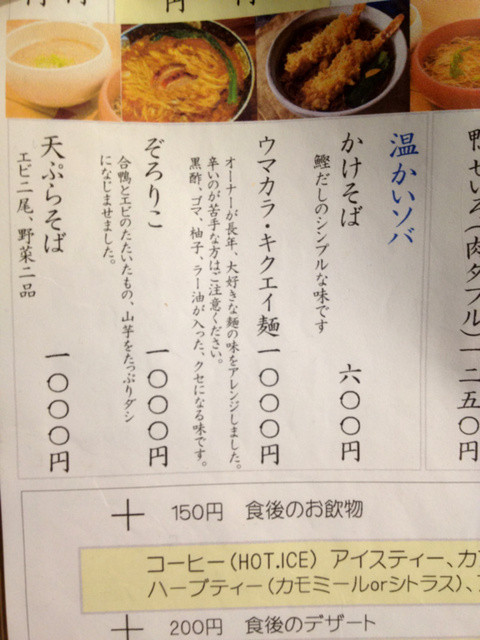 鴨せいろ(肉ダブル)一二五〇円
温かいソバ
かけそば 六〇〇円
鰹だしのシンプルな味です
ウマカラ・キクエイ麺 一〇〇〇円
オーナーが長年、大好きな麺の味をアレンジしました。
辛いのが苦手な方はご注意ください。
黒酢、ゴマ、柚子、ラー油が入った、クセになる味です。
ぞろりこ 一〇〇〇円
合鴨とエビのたたいたもの、山芋をたっぷりダシ
になじませました。
天ぷらそば 一〇〇〇円
エビ二尾、野菜二品
＋ 150円 食後のお飲物
コーヒー(HOT.ICE) アイスティー、カフ
ハーブティー(カモミールorシトラス)、
＋ 200円 食後のデザート